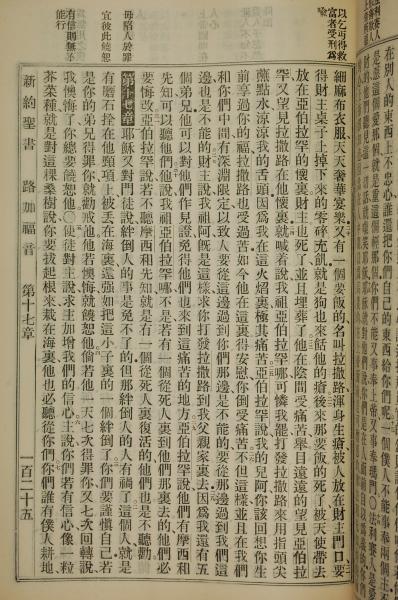 以乞丐得救
富者受刑爲
喻
毋陷人於罪
宜彼此饒恕
有信則無不
能行
細麻布衣服天天奢華宴樂又有一個要飯的名叫拉撒路渾身生瘡被人放在財主門口要
得財主桌子上掉下來的零碎充飢就是狗也來餂他的瘡後來那要飯的死了被天使帶去
放在亞伯拉罕的懷裏財主也死了並且埋葬了他在陰間受痛苦舉目遠遠的望見亞伯拉
罕又望見拉撒路在他懷裏就喊着說我祖亞伯拉罕哪可憐我罷打發拉撒路來用指頭尖
蘸點水涼涼我的舌頭因爲我在這火焰裏極其痛苦亞伯拉罕說我的兒阿你該回想你生
前享過你的福拉撒路也受過苦如今他在這裏得安慰你倒受痛苦不但這樣並且在我們
和你們中間有深淵限定以致人要從這邊過到你們那邊是不能的要從那邊過到我們這
邊也是不能的財主說我祖阿旣是這樣求你打發拉撒路到我父親家裏去因爲我還有五
個弟兄他可以對他們作見證免得他們也來到這痛苦的地方亞伯拉罕說他們有摩西和
先知可以聽他們他說我祖亞伯拉罕哪不是若有一個從死人裏到他們那裏去的他們必
要悔改亞伯拉罕說若不聽摩西和先知就是有一個從死人裏復活的他們也是不聽勸
第十七章 耶穌又對門徒說絆倒人的事是免不了的但那絆倒人的人有禍了這個人就是
有磨石拴在他頸項上被丟在海裏還强如把這小子裏的一個絆倒了你們要謹愼自己若
是你的弟兄得罪你就勸戒他他若懊悔就饒恕他倘若他一天七次得罪你又七次回轉說
我懊悔了你總要饒恕他〇使徒對主說求主加增我們的信心主說你們若有信心像一粒
芥菜種就是對這棵桑樹說你要拔起根來栽在海裏他也必聽從你們你們誰有僕人耕地
新約聖書 路加福音 第十七章 一百二十五